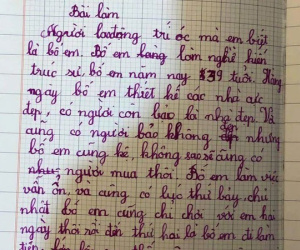 Bài làm
Người lao động trí óc mà em biết
là bố em. Bố em làm nghề kiến
trúc sư, bố em năm nay 39 tuổi. Hàng
ngày bố em thiết kế các nhà cực
đẹp, có người còn bảo là nhà đẹp. Và
cũng có người bảo không đẹp nhưng
bố em cũng kệ, không sao sẽ cũng có
người mua thôi. Bố em làm việc
vẫn ổn, và cũng có lúc thứ bảy, chủ
nhật bố em cũng chỉ chơi với em hai
ngày thôi rồi đến thứ hai là bố em đi làm